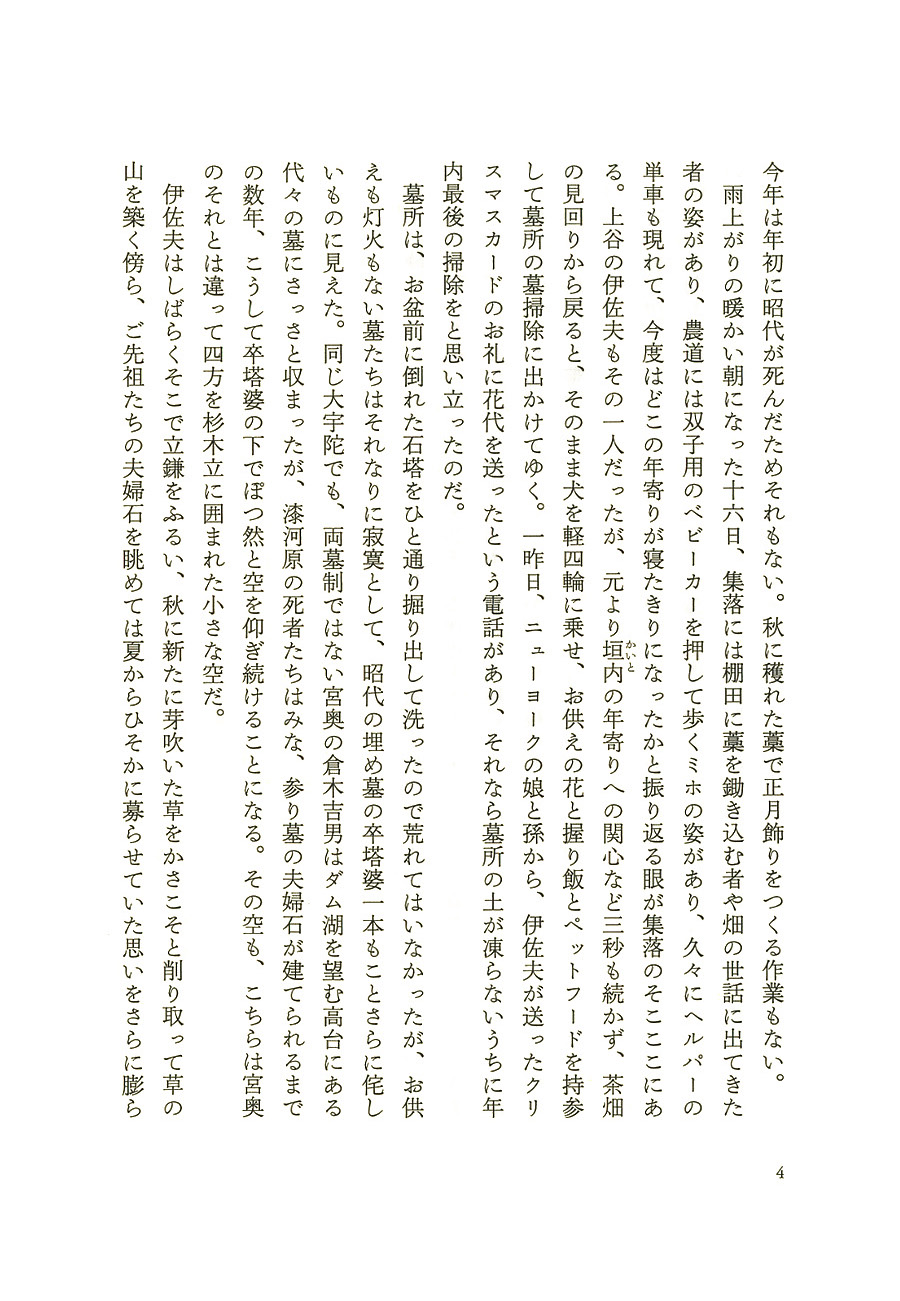 今年は年初に昭代が死んだためそれもない。秋に穫れた藁で正月飾りをつくる作業もない。
雨上がりの暖かい朝になった十六日、集落には棚田に藁を鋤き込む者や畑の世話に出てきた
者の姿があり、農道には双子用のベビーカーを押して歩くミホの姿があり、久々にヘルパーの
単車も現れて、今度はどこの年寄りが寝たきりになったかと振り返る眼が集落のそこここにあ
る。上谷の伊佐夫もその一人だったが、元より垣内の年寄りへの関心など三秒も続かず、茶畑
かいと
の見回りから戻ると、そのまま犬を軽四輪に乗せ、お供えの花と握り飯とペットフードを持参
して墓所の墓掃除に出かけてゆく。一昨日、ニューヨークの娘と孫から、伊佐夫が送ったクリ
スマスカードのお礼に花代を送ったという電話があり、それなら墓所の土が凍らないうちに年
内最後の掃除をと思い立ったのだ。
墓所は、お盆前に倒れた石塔をひと通り掘り出して洗ったので荒れてはいなかったが、お供
えも灯火もない墓たちはそれなりに寂寞として、昭代の埋め墓の卒塔婆一本もことさらに侘し
いものに見えた。同じ大宇陀でも、両墓制ではない宮奥の倉木吉男はダム湖を望む高台にある
代々の墓にさっさと収まったが、漆河原の死者たちはみな、参り墓の夫婦石が建てられるまで
の数年、こうして卒塔婆の下でぽつ然と空を仰ぎ続けることになる。その空も、こちらは宮奥
のそれとは違って四方を杉木立に囲まれた小さな空だ。
伊佐夫はしばらくそこで立鎌をふるい、秋に新たに芽吹いた草をかさこそと削り取って草の
山を築く傍ら、ご先祖たちの夫婦石を眺めては夏からひそかに募らせていた思いをさらに膨ら
4